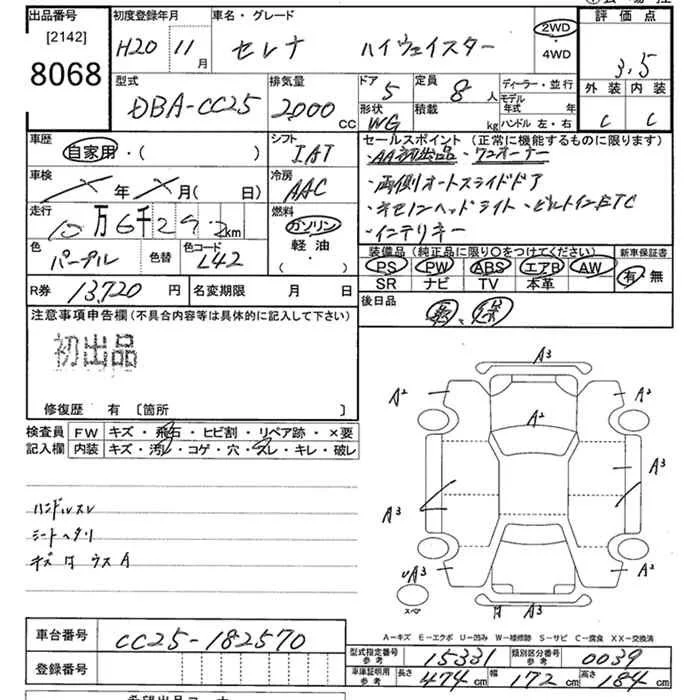 出品番号 初度登録年月 車名・グレード 評価点
[2142]
8068
H20 11月 セレナ ハイウェイスター 2WD・4WD 3.5
型式 排気量 ドア 定員 ディーラー・並行 外装 内装
DBA-CC25 2000cc 5 8人 モデル年式 年 C C
形状 積載 ハンドル 左・右
WG kg
車歴 シフト セールスポイント (正常に機能するものに限ります)
自家用・( ) IAT ・AA初出品・ワンオーナー
車検 冷房
年 月( 日) AAC ・両側オートスライドドア
走行 燃料 ・キセノンヘッドライト・ビルトインETC
10万6千292km ガソリン ・インテリキー
色 色替 色コード 軽油・( ) 装備品 (純正品に限り○をつけてください) 新車保証書
パープル L42 PS PW ABS エアB AW 有・無
SR ナビ TV 本革
R券 13,720円 名変期限 月 日 後日品
取、保
注意事項申告欄 (不具合内容等は具体的に記入して下さい)
初出品
修復歴 有 〔箇所 〕
検査員 FW キズ・飛石・ヒビ割・リペア跡・×要
記入欄 内装 キズ・汚レ・コゲ・穴・スレ・キレ・破レ
A3
A2 A2 A3
A3 A3
UA3 A2
スペア A3
ハンドルスレ
シートヘタリ
キズ ウスA
A-キズ E-エクボ U-凹み W-補修跡 S-サビ C-腐食 XX-交換済
車台番号 CC25-182570
型式指定番号 参考 15331 類別区分番号 参考 0039
登録番号 車庫証明用 参考 長さ 474cm 幅 172cm 高さ 184cm